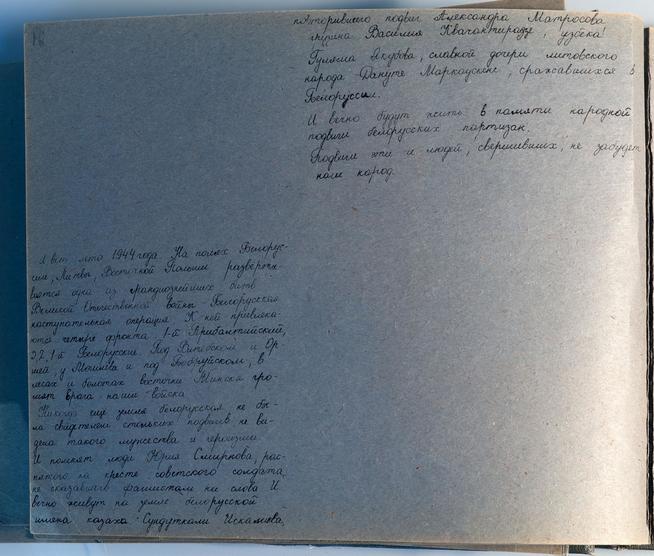 А вот лето 1944 года. На полях Белорус-
сии, Литвы, Восточной Польши разверты-
вается одна из грандиознейших битв
Великой Отечественной войны Белорусская
наступательная операция. К ней привлека-
ются четыре фронта: 1-й Прибалтийский,
3,2,1-й Белорусские. Под Витебском и Ор-
шей, у Могилева и под Бобруйском, в
лесах и болотах восточнее Минска гро-
мят врага наши войска
Никогда ещё земля белорусская не бы-
ла свидетелем стольких подвигов не ви-
дела такого мужества и героизма.
И помнят люди Юрия Смирнова, рас-
пятого на кресте советского солдата,
не сказавшего фашистам ни слова И
вечно живут на земле белорусской
имена казаха Сундуткали Искалиева,
повторившего подвиг Александра Матросова
грузина Василия Квачантирадзе, узбека
Гуляма Якубова, славной дочери литовского
народа Дануте Маркаускене, сражавшихся в
Белоруссии.
И вечно будут жить в памяти народной
подвиги белорусских партизан.
Подвиги эти и людей, свершивших, не забудет
наш народ.